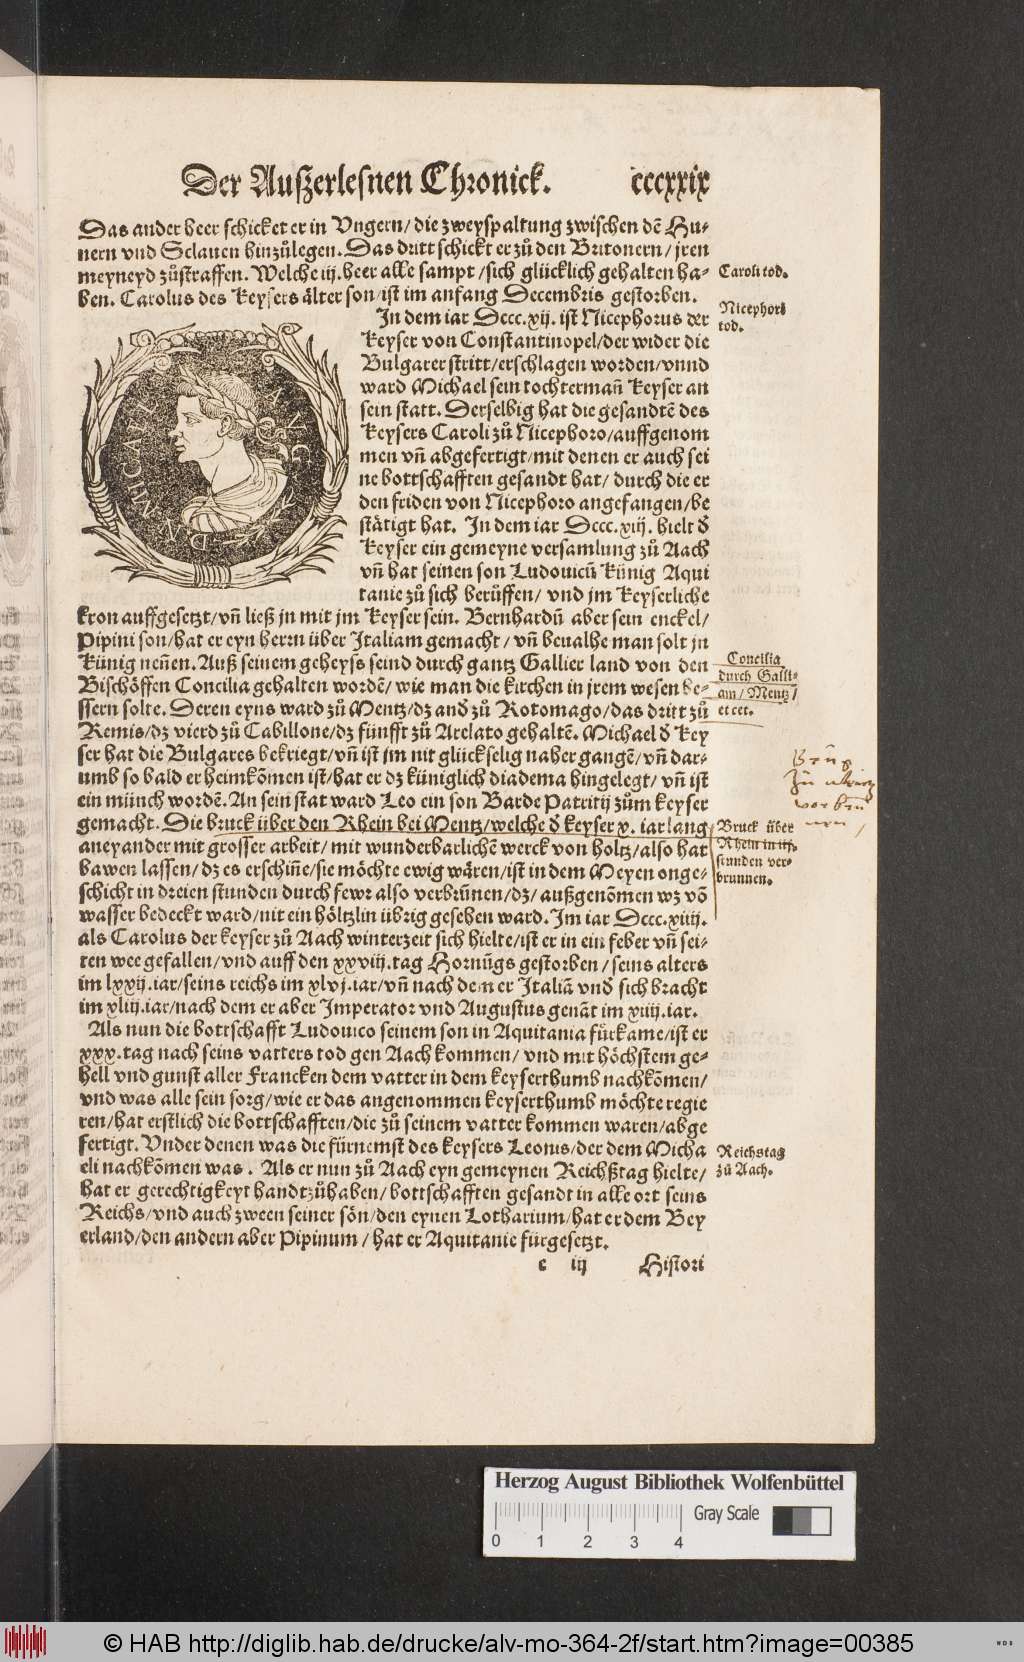 Der Auſzerleſnen Chronick. cccxxix
Das ander heer ſchicket er in Vngern/ die zweyſpaltung zwiſchen dē Hu-
nern vnd Sclauen hinzůlegen. Das dritt ſchickt er zů den Britonern/ jren
meyneyd zůſtraffen. Welche iij. heer alle ſampt/ ſich glücklich gehalten ha-
ben. Carolus des Keyſers älter ſon/ iſt im anfang Decembris geſtorben.
Caroli tod.
In dem iar Dccc.xij. iſt Nicephorus der
Keyſer von Conſtantinopel/ der wider die
Bulgarer ſtritt/ erſchlagen worden/ vnnd
ward Michael ſein tochtermañ Keyſer an
ſein ſtatt. Derſelbig hat die geſandtē des
Keyſers Caroli zů Nicephoro/ auffgenom
men vñ abgefertigt/ mit denen er auch ſei
ne bottſchafften geſandt hat/ durch die er
den friden von Nicephoro angefangen/ be
ſtätigt hat. In dem iar Dccc.xiij. hielt d̄
Keyſer ein gemeyne verſamlung zů Aach
vñ hat ſeinen ſon Ludouicū Künig Aqui
tanie zů ſich berůffen/ vnd jm Keyſerliche
Nicephori
tod.
kron auffgeſetzt/ vñ ließ jn mit jm Keyſer ſein. Bernhardū aber ſein enckel/
Pipini ſon/ hat er eyn herrn über Italiam gemacht/ vñ beualhe man ſolt jn
Künig neñen. Auß ſeinem geheyſs ſeind durch gantz Gallier land von den
Biſchöffen Concilia gehalten wordē/ wie man die kirchen in jrem weſen be-
ſſern ſolte. Deren eyns ward zů Mentz/ dz and̄ zů Rotomago/ das dritt zů
Remis/ dz vierd zů Cabillone/ dz fünfft zů Arelato gehaltē. Michael d̄ Key
ſer hat die Bulgares bekriegt/ vñ iſt jm nit glückſelig naher gangē/ vñ dar-
umb ſo bald er heimkōmen iſt/ hat er dz küniglich diadema hingelegt/ vñ iſt
ein münch wordē. An ſein ſtat ward Leo ein ſon Barde Patritij zům keyſer
gemacht. Die bruck über den Rhein bei Mentz/ welche d̄ keyſer x. iar lang
aneyander mit groſſer arbeit/ mit wunderbarlichē werck von holtz/ alſo hat
bawen laſſen/ dz es erſchiñe/ ſie möchte ewig wären/ iſt in dem Meyen onge-
ſchicht in dreien ſtunden durch fewr alſo verbrūnen/ dz/ außgenōmen wz vō
waſſer bedeckt ward/ nit ein höltzlin übrig geſehen ward. Im iar Dccc.xiiij.
als Carolus der keyſer zů Aach winterzeit ſich hielte/ iſt er in ein feber vñ ſei-
ten wee gefallen/ vnd auff den xxviij. tag Hornūgs geſtorben/ ſeins alters
im lxxij. iar/ ſeins reichs im xlvj. iar/ vñ nach dem er Italiā vnd̄ ſich bracht
im xliij. iar/ nach dem er aber Imperator vnd Auguſtus genāt im xiiij. iar.
Concilia
durch Galli-
am/ Mentz/
et cet.
Bruck über
Rhein in iij.
ſtunden ver-
brunnen.
Als nun die bottſchafft Ludouico ſeinem ſon in Aquitania fürkame/ iſt er
xxx. tag nach ſeins vatters tod gen Aach kommen/ vnd mit höchſtem ge-
hell vnd gunſt aller Francken dem vatter in dem keyſerthumb nachkōmen/
vnd was alle ſein ſorg/ wie er das angenommen keyſerthumb möchte regie
ren/ hat erſtlich die bottſchafften/ die zů ſeinem vatter kommen waren/ abge
fertigt. Vnder denen was die fürnemſt des keyſers Leonis/ der dem Micha
eli nachkōmen was. Als er nun zů Aach eyn gemeynen Reichßtag hielte/
hat er gerechtigkeyt handtzůhaben/ bottſchafften geſandt in alle ort ſeins
Reichs/ vnd auch zween ſeiner ſön/ den eynen Lotharium/ hat er dem Bey
erland/ den andern aber Pipinum/ hat er Aquitanie fürgeſetzt.
Reichstag
zů Aach.
c iij Hiſtori
Herzog August Bibliothek Wolfenbüttel
Gray Scale
0 1 2 3 4
© HAB http://diglib.hab.de/drucke/alv-mo-364-2f/start.htm?image=00385